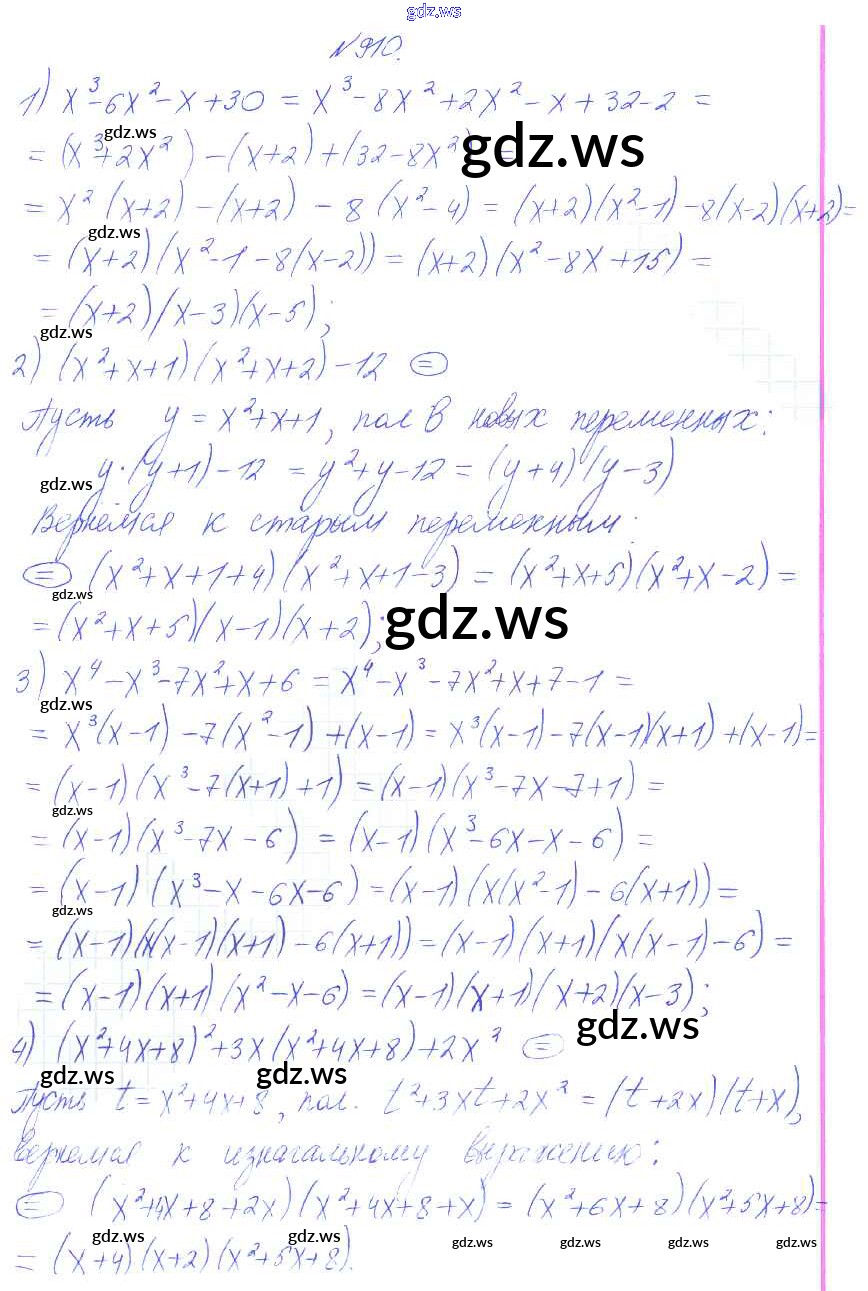 gdz.ws
№910.
1) x³-6x²-x+30 = x³-8x²+2x²-x+32-2 =
gdz.ws
= (x³+2x²) -(x+2)+(32-8x²) = gdz.ws
= x²(x+2)-(x+2) - 8(x²-4) = (x+2)(x²-1)-8(x-2)(x+2)=
gdz.ws
= (x+2)(x²-1-8(x-2)) = (x+2)(x²-8x+15) =
= (x+2)(x-3)(x-5);
gdz.ws
2) (x²+x+1)(x²+x+2)-12 ⊜
Пусть y = x²+x+1, пол в новых переменных:
gdz.ws y·(y+1)-12 = y²+y-12 = (y+4)(y-3)
Вернёмся к старым переменным:
⊜ (x²+x+1+4)(x²+x+1-3) = (x²+x+5)(x²+x-2) =
gdz.ws
= (x²+x+5)(x-1)(x+2); gdz.ws
3) x⁴-x³-7x²+x+6 = x⁴-x³-7x²+x+7-1 =
gdz.ws
= x³(x-1)-7(x²-1)+(x-1) = x³(x-1)-7(x-1)(x+1)+(x-1)=
= (x-1)(x³-7(x+1)+1) = (x-1)(x³-7x-7+1) =
gdz.ws
= (x-1)(x³-7x-6) = (x-1)(x³-6x-x-6) =
= (x-1)(x³-x-6x-6) = (x-1)(x(x²-1)-6(x+1)) =
gdz.ws
= (x-1)(x(x-1)(x+1)-6(x+1)) = (x-1)(x+1)(x(x-1)-6) =
= (x-1)(x+1)(x²-x-6) = (x-1)(x+1)(x+2)(x-3);
4) (x²+4x+8)²+3x(x²+4x+8)+2x² ⊜ gdz.ws
gdz.ws gdz.ws
Пусть t = x²+4x+8, пол. t²+3xt+2x² = (t+2x)(t+x),
вернемся к изначальному выражению:
⊜ (x²+4x+8+2x)(x²+4x+8+x) = (x²+6x+8)(x²+5x+8)=
gdz.ws gdz.ws gdz.ws gdz.ws gdz.ws gdz.ws
= (x+4)(x+2)(x²+5x+8).